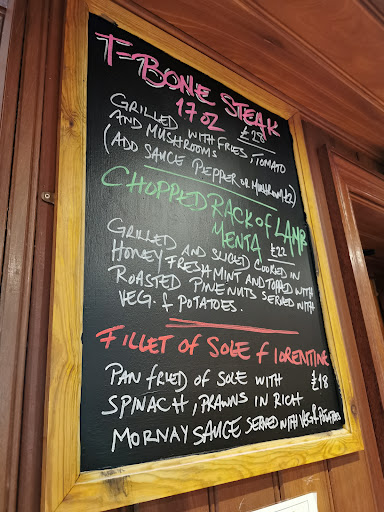 T-BONE STEAK
17 OZ £28
GRILLED WITH FRIES, TOMATO
AND MUSHROOMS
(ADD SAUCE PEPPER OR MUSHROOM £2)
CHOPPED RACK OF LAMB
MENTA £22
GRILLED AND SLICED COOKED IN
HONEY FRESH MINT AND TOPPED WITH
ROASTED PINE NUTS SERVED WITH
VEG. & POTATOES.
FILLET OF SOLE FLORENTINE
PAN FRIED OF SOLE WITH £18
SPINACH, PRAWNS IN RICH
MORNAY SAUCE SERVED WITH VEG & POTATOES